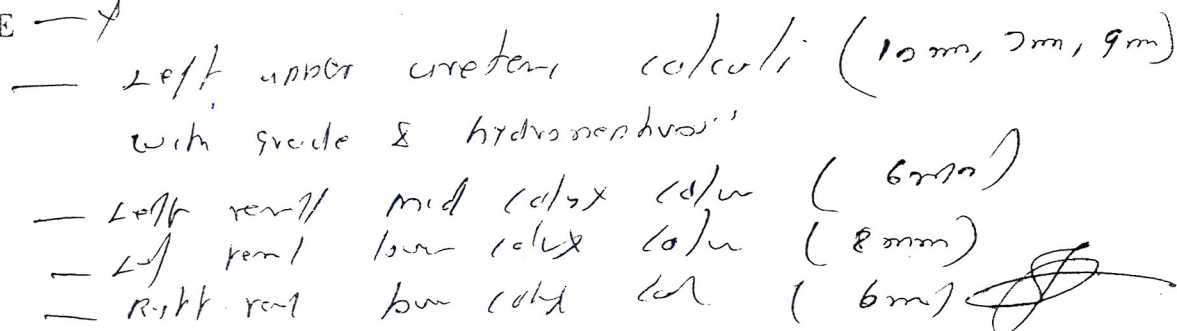 E
— Left upper ureteric calculi (10 mm, 7mm, 9mm)
with grade hydronephrosis
— Left renal mid calyx calcu (6mm)
— Left renal lower calyx calcu (8mm)
— Right renal lower calyx cal (6mm)